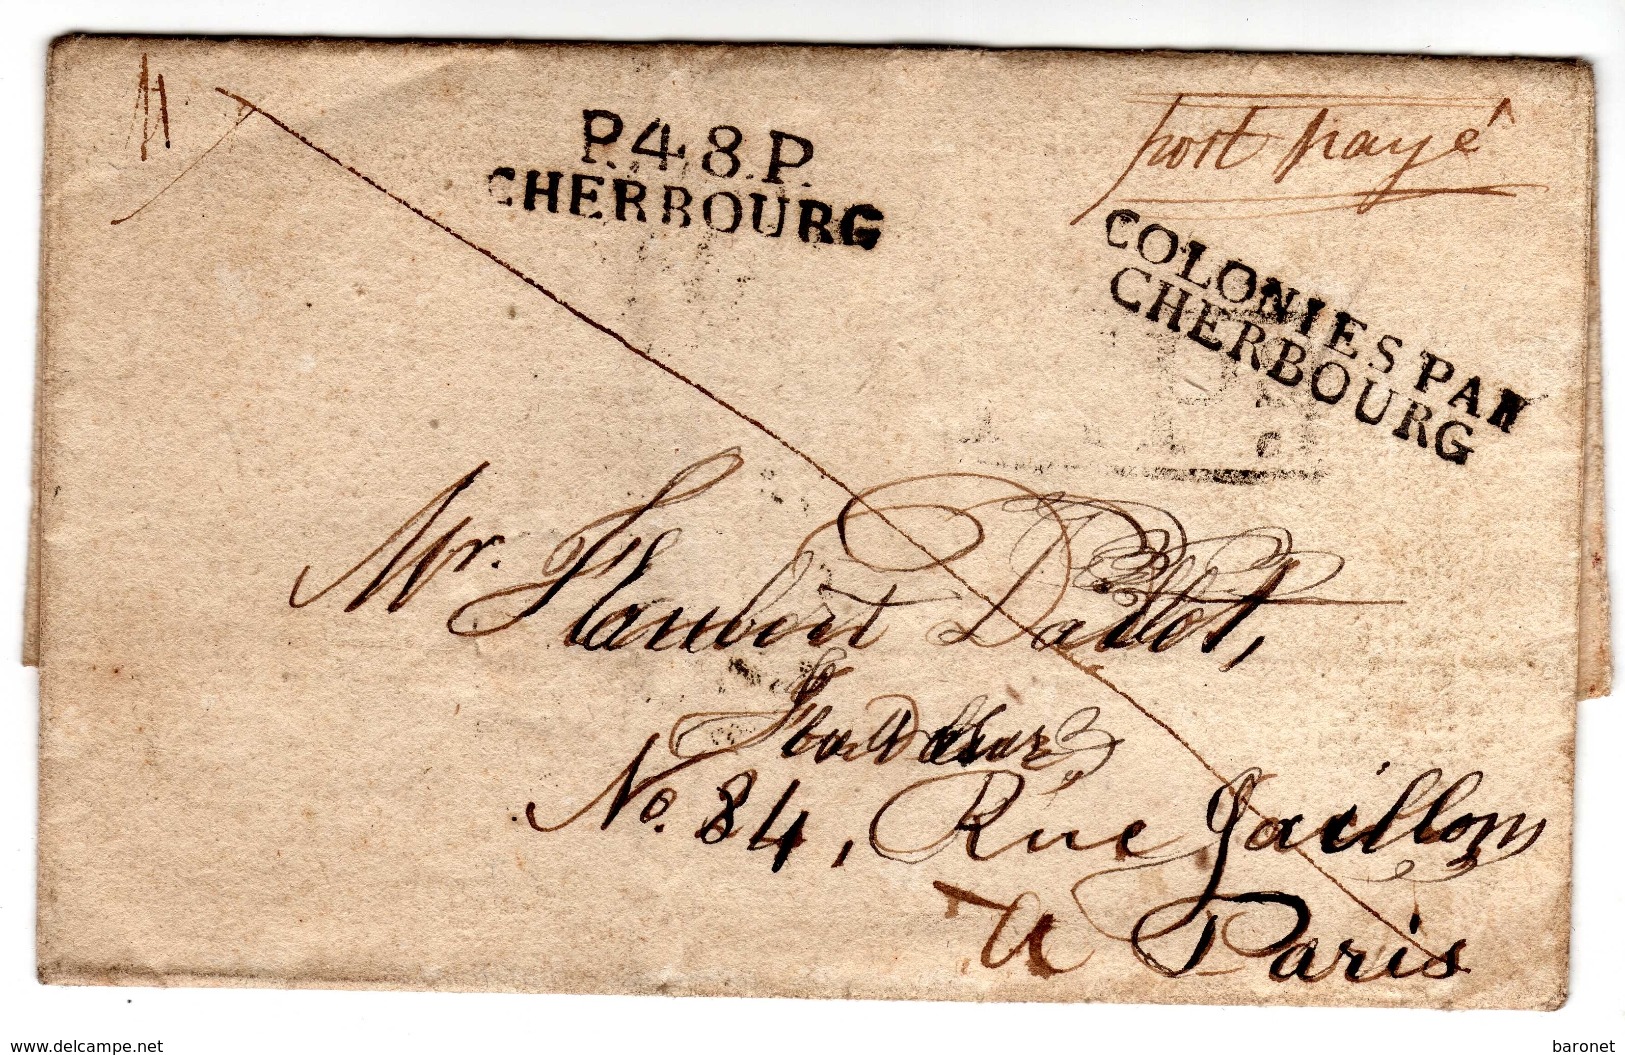 P.48.P.
CHERBOURG
port payé
COLONIES PAR
CHERBOURG
Mr. Flaubert
No. 84, Rue Gaillon,
a Paris
www.delcampe.net
baronet